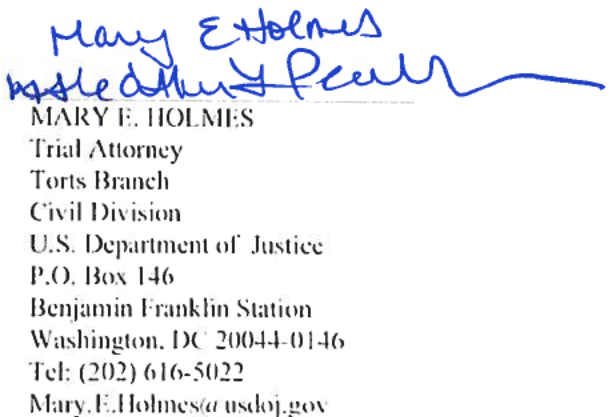 Mary E Holmes
MARY E. HOLMES
Trial Attorney
Torts Branch
Civil Division
U.S. Department of Justice
P.O. Box 146
Benjamin Franklin Station
Washington, DC 20044-0146
Tel: (202) 616-5022
Mary.E.Holmes@usdoj.gov